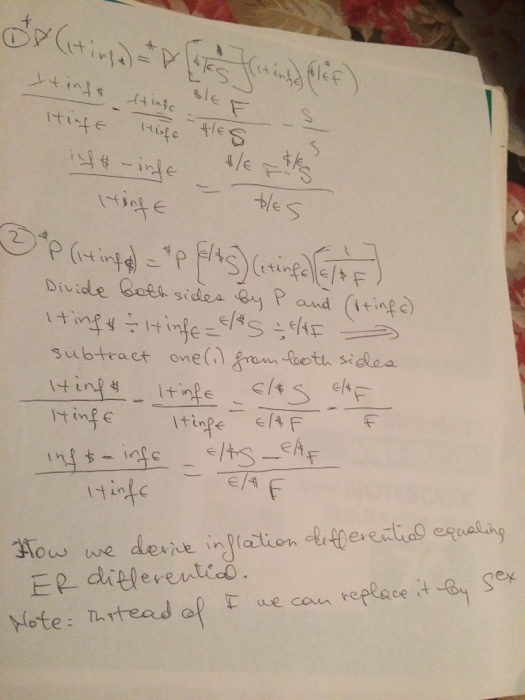 ① $P (1+inf$) = $P [1 / $/€ S] (1+inf€) ($/€ F)
1+inf$ / 1+inf€ - 1+inf€ / 1+inf€ = $/€ F / $/€ S - S / S
inf$ - inf€ / 1+inf€ = $/€ F - $/€ S / $/€ S
② $P (1+inf$) = $P [€/$ S] (1+inf€) [1 / €/$ F]
Divide both sides by P and (1+inf€)
1+inf$ ÷ 1+inf€ = €/$ S ÷ €/$ F ⟹
subtract one (1) from both sides
1+inf$ / 1+inf€ - 1+inf€ / 1+inf€ = €/$ S / €/$ F - €/$ F / F
inf$ - inf€ / 1+inf€ = €/$ S - €/$ F / €/$ F
How we derive inflation differential equaling
ER differential.
Note: Instead of F we can replace it by S ex